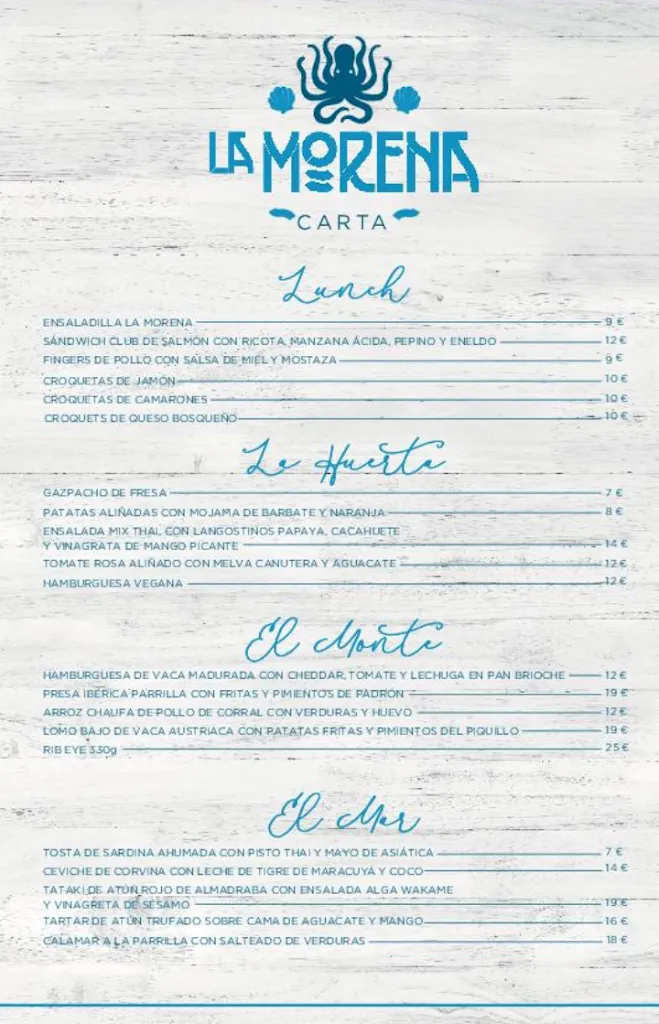 LA MORENA
CARTA
Lunch
ENSALADILLA LA MORENA 9 €
SÁNDWICH CLUB DE SALMÓN CON RICOTA, MANZANA ÁCIDA, PEPINO Y ENELDO 12 €
FINGERS DE POLLO CON SALSA DE MIEL Y MOSTAZA 9 €
CROQUETAS DE JAMÓN 10 €
CROQUETAS DE CAMARONES 10 €
CROQUETS DE QUESO BOSQUEÑO 10 €
La Huerta
GAZPACHO DE FRESA 7 €
PATATAS ALIÑADAS CON MOJAMA DE BARBATE Y NARANJA 8 €
ENSALADA MIX THAI, CON LANGOSTINOS PAPAYA, CACAHUETE
Y VINAGRATA DE MANGO PICANTE 14 €
TOMATE ROSA ALIÑADO CON MELVA CANUTERA Y AGUACATE 12 €
HAMBURGUESA VEGANA 12 €
El Monte
HAMBURGUESA DE VACA MADURADA CON CHEDDAR, TOMATE Y LECHUGA EN PAN BRIOCHE 12 €
PRESA IBÉRICA PARRILLA CON FRITAS Y PIMIENTOS DE PADRÓN 19 €
ARROZ CHAUFA DE POLLO DE CORRAL CON VERDURAS Y HUEVO 12 €
LOMO BAJO DE VACA AUSTRIACA CON PATATAS FRITAS Y PIMIENTOS DEL PIQUILLO 19 €
RIB EYE 330g 25 €
El Mar
TOSTA DE SARDINA AHUMADA CON PISTO THAI Y MAYO DE ASIÁTICA 7 €
CEVICHE DE CORVINA CON LECHE DE TIGRE DE MARACUYÁ Y COCO 14 €
TATAKI DE ATÚN ROJO DE ALMADRABA CON ENSALADA ALGA WAKAME
Y VINAGRETA DE SÉSAMO 19 €
TARTAR DE ATÚN TRUFADO SOBRE CAMA DE AGUACATE Y MANGO 16 €
CALAMAR A LA PARRILLA CON SALTEADO DE VERDURAS 18 €